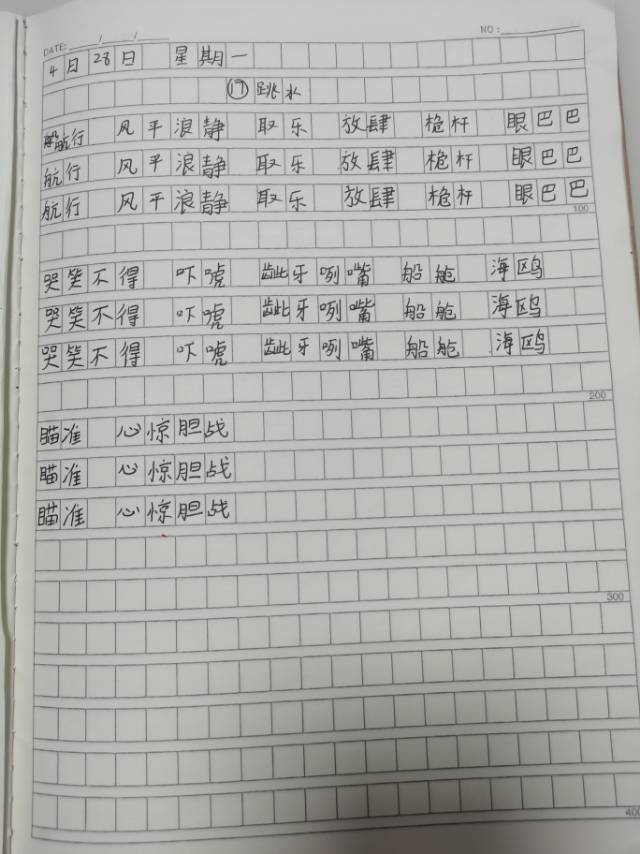 DATE: / / NO:
4月28日 星期一
⑰跳水
航行 风平浪静 取乐 放肆 桅杆 眼巴巴
航行 风平浪静 取乐 放肆 桅杆 眼巴巴
航行 风平浪静 取乐 放肆 桅杆 眼巴巴
100
哭笑不得 吓唬 龇牙咧嘴 船舱 海鸥
哭笑不得 吓唬 龇牙咧嘴 船舱 海鸥
哭笑不得 吓唬 龇牙咧嘴 船舱 海鸥
200
瞄准 心惊胆战
瞄准 心惊胆战
瞄准 心惊胆战
300
400